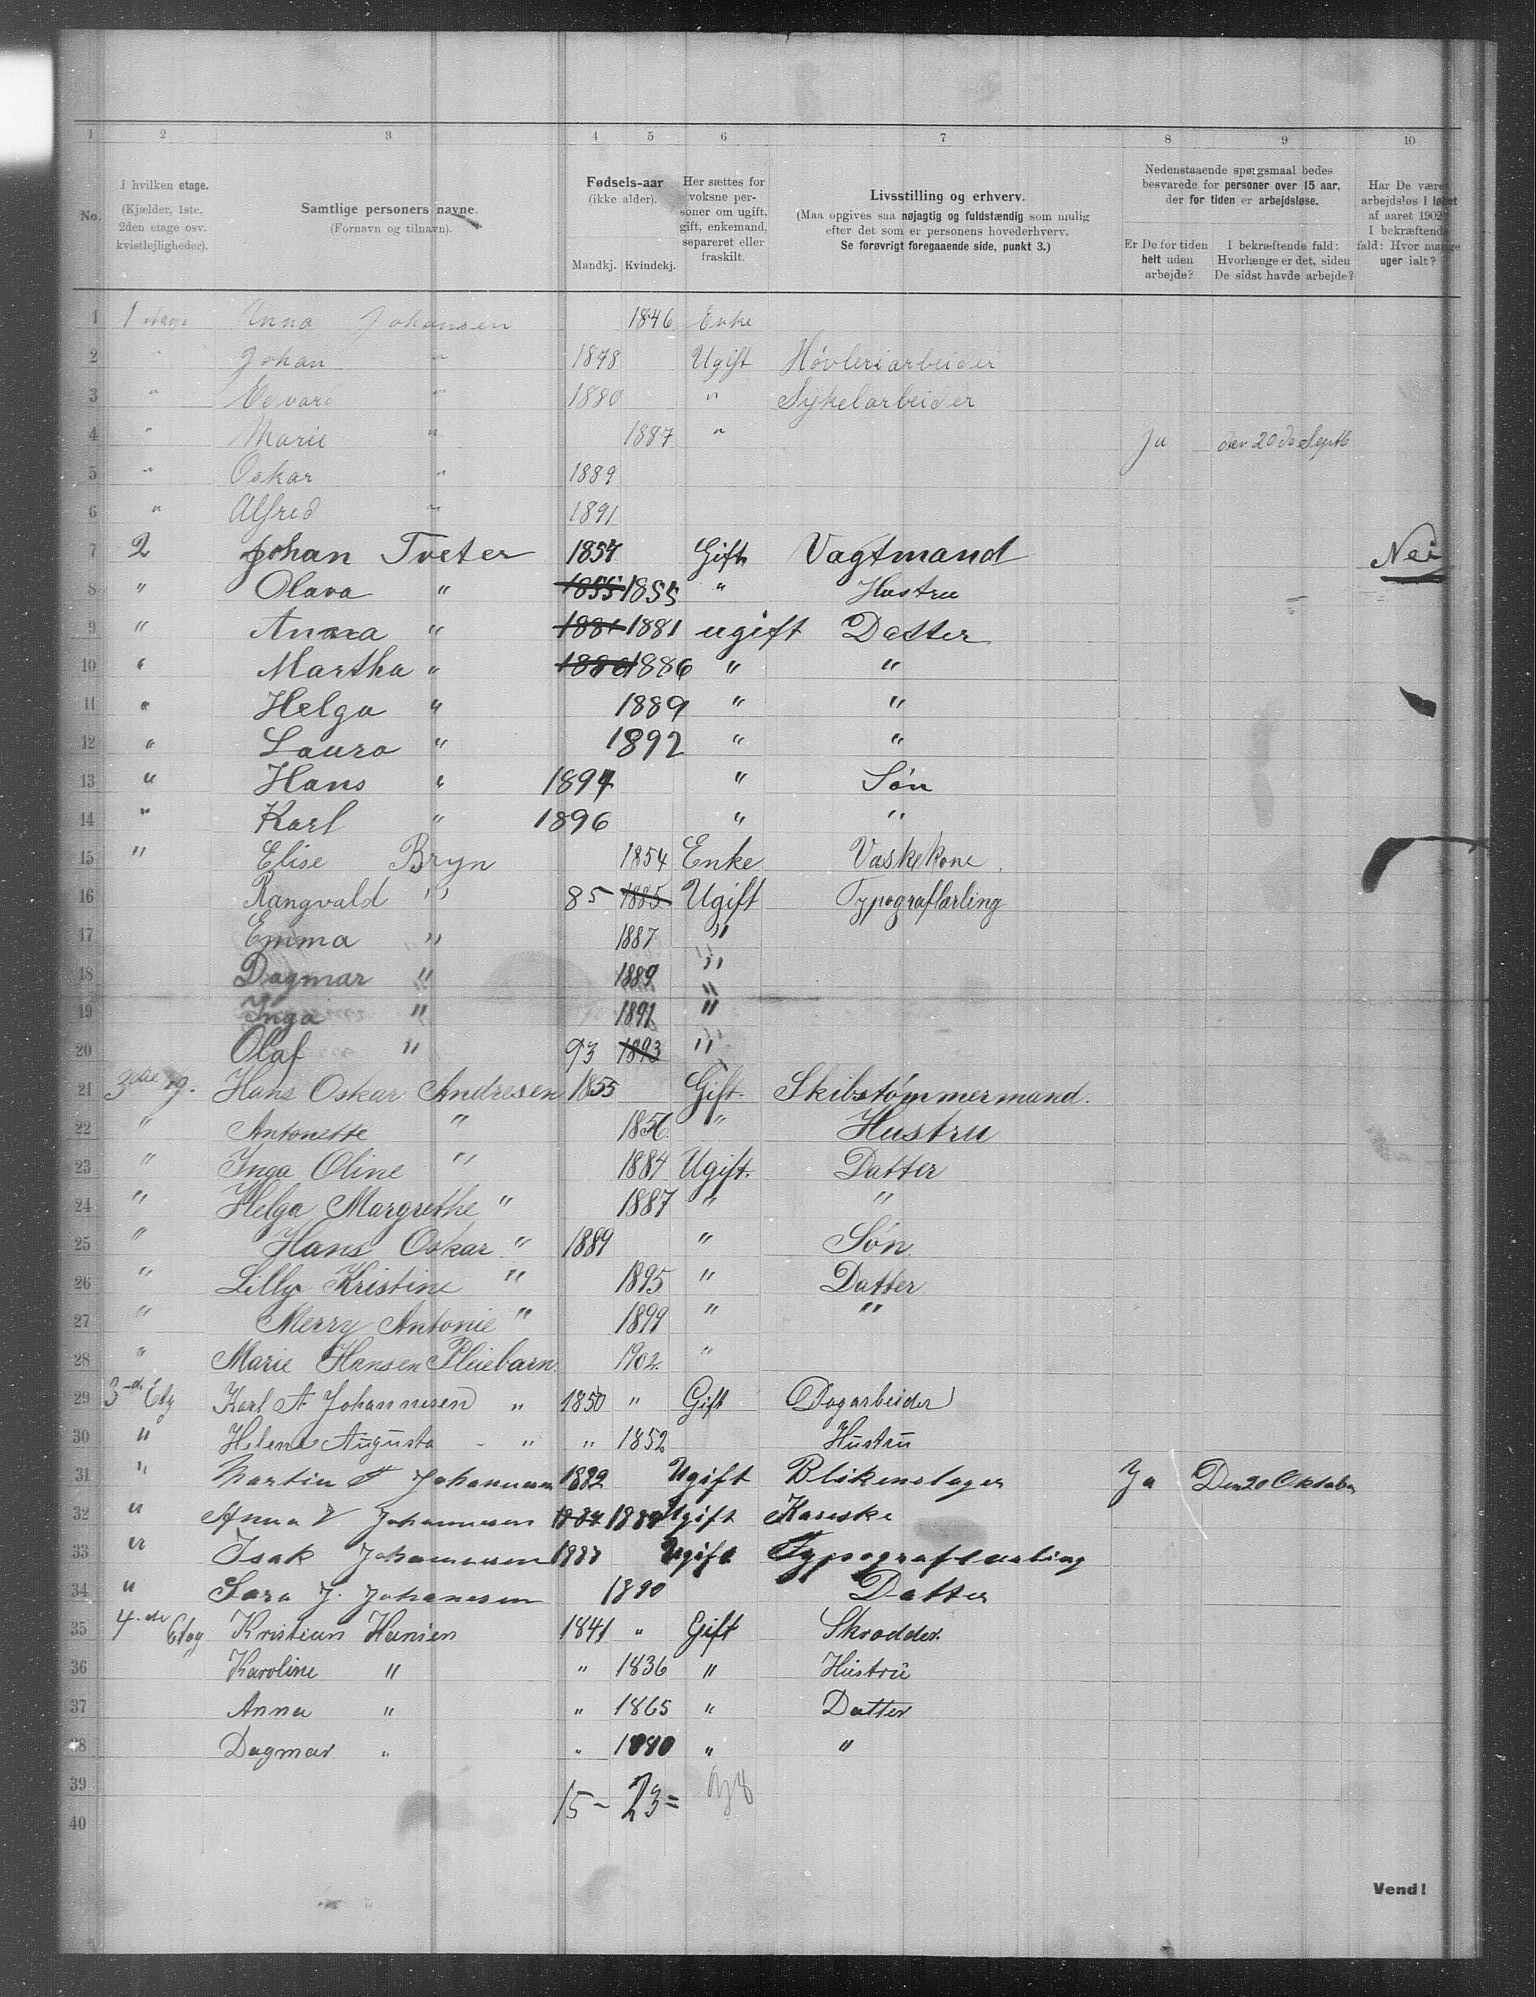 1 2 3 4 5 6 7 8 9 10
No.
I hvilken etage.
(Kjælder, 1ste.
2den etage osv.
kvistlejligheder).
Samtlige personers navne.
(Fornavn og tilnavn).
Fødsels-aar
(ikke alder).
Mandkj. Kvindekj.
Her sættes for
voksne per-
soner om ugift,
gift, enkemand,
separeret eller
fraskilt.
Livsstilling og erhverv.
(Maa opgives saa nøjagtig og fuldstændig som mulig
efter det som er personens hovederhverv.
Se forøvrigt foregaaende side, punkt 3.)
Nedenstaaende spørgsmaal bedes
besvarede for personer over 15 aar,
der for tiden er arbejdsløse.
Er De for tiden
helt uden
arbejde?
I bekræftende fald:
Hvorlænge er det, siden
De sidst havde arbejde?
Har De været
arbejdsløs i løbet
af aaret 1902?
I bekræftende
fald: Hvor mange
uger ialt?
1 1 etage Anna Johansen 1846 Enke
2 " Johan " 1878 Ugift Høvleriarbeider
3 " Edvard " 1880 " Sykelarbeider
4 " Marie " 1887 " Ja den 20 de Septb
5 " Oskar " 1889
6 " Alfred " 1891
7 2 Johan Tveter 1857 Gift Vagtmand Nei
8 " Olava " 1855 1855 " Hustru
9 " Anna " 1881 1881 ugift Datter
10 " Martha " 1886 1886 " "
11 " Helga " 1889 " "
12 " Laura " 1892 " "
13 " Hans " 1894 " Søn
14 " Karl " 1896 " "
15 " Elise Bryn 1854 Enke Vaskekone
16 Rangvald " 85 1885 Ugift Typograflærling
17 Emma " 1887 "
18 Dagmar " 1889 "
19 Inga " 1891 "
20 Olaf " 93 1893 "
21 3die Hans Oskar Andresen 1855 Gift. Skibstømmermand.
22 " Antonette " 1856. " Hustru
23 " Inga Oline " 1884 Ugift. Datter
24 " Helga Margrethe " 1887 " "
25 " Hans Oskar " 1889 " Søn.
26 " Lilly Kristine " 1895 " Datter
27 " Merry Antonie " 1899 " "
28 " Marie Hansen Pleiebarn. 1902. "
29 3-die Etg Karl A Johannesen " 1850 " Gift Dagarbeider
30 " Helene Augusta - " " 1852 Hustru
31 " Martin F Johannesen 1882 Ugift Blikenslager Ja Den 20 Oktober
32 " Anna V Johannesen 1884 Ugift Kareske
33 " Isak Johannesen 1887 Ugift Typograflærling
34 " Sara J. Johanesen 1890 Datter
35 4-de Etag Kristian Hansen 1841 " Gift Skrædder.
36 Karoline " " 1836 " Hustru
37 Anna " " 1865 " Datter
38 Dagmar " " 1880 " "
39 15 - 23 =
40
Vend!